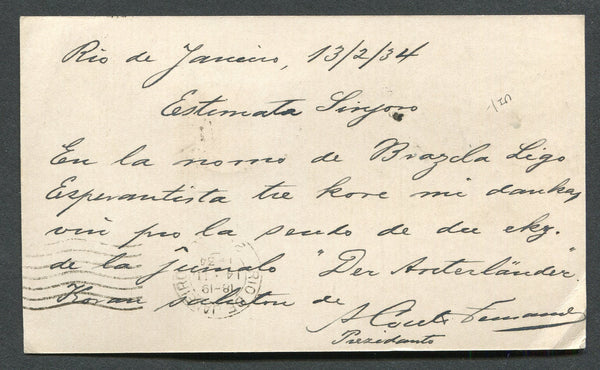 Rio de Janeiro, 13/2/34
Estimata Sinjoro
En la nomo de Brazila Ligo
Esperantista tre kore mi dankas
vin pro la sendo de du ekz.
de la ĵurnalo "Der Arterländer".
Koran saluton de
A Couto Fernandes
Prezidanto